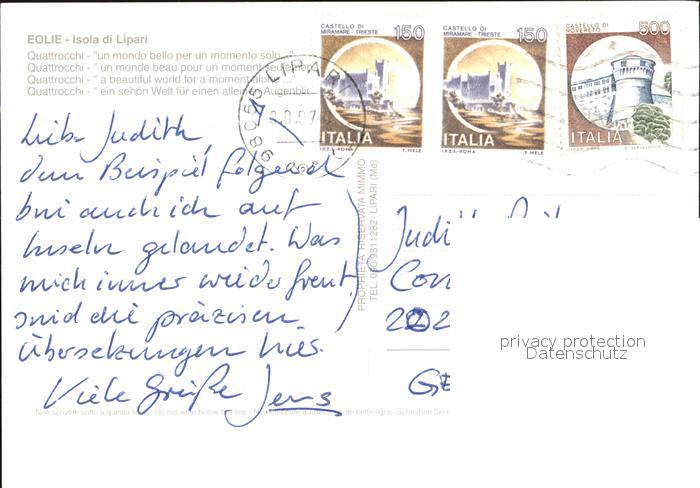 EOLIE - Isola di Lipari
Quattrocchi - "un mondo bello per un momento solo
Quattrocchi - " un monde beau pour un moment seulement
Quattrocchi - " a beautiful world for a moment alone
Quattrocchi - " ein sehön Welt für einen allein Augenblic
CASTELLO DI
MIRAMARE - TRIESTE
150
ITALIA
I.P.Z.S. - ROMA T. MELE
CASTELLO DI
MIRAMARE - TRIESTE
150
ITALIA
I.P.Z.S. - ROMA T. MELE
CASTELLO DI
ROVERETO
500
ITALIA
98055 LIPARI
Liebe Judith,
dem Beispiel folgend
bin auch ich auf
Inseln gelandet. Was
mich immer wieder freut
sind die präzisen
Übersetzungen hies.
Viele Grüße Jens
PROPRIETA' RISERVATA MIMMO
TEL. 090/9811282- LIPARI (Me)
Judi
Con
2
GE
Non scrivere sotto a questa Do not write below the line - de cette ligne -Schreiben Sie
privacy protection
Datenschutz